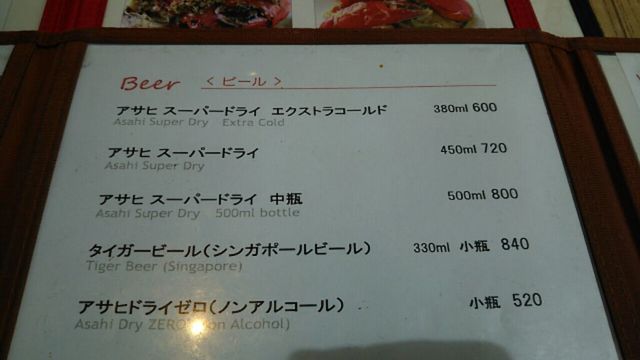 Beer <ビール>
アサヒ スーパードライ エクストラコールド 380ml 600
Asahi Super Dry Extra Cold
アサヒ スーパードライ 450ml 720
Asahi Super Dry
アサヒ スーパードライ 中瓶 500ml 800
Asahi Super Dry 500ml bottle
タイガービール(シンガポールビール) 330ml 小瓶 840
Tiger Beer (Singapore)
アサヒドライゼロ(ノンアルコール) 小瓶 520
Asahi Dry ZERO Alcohol)